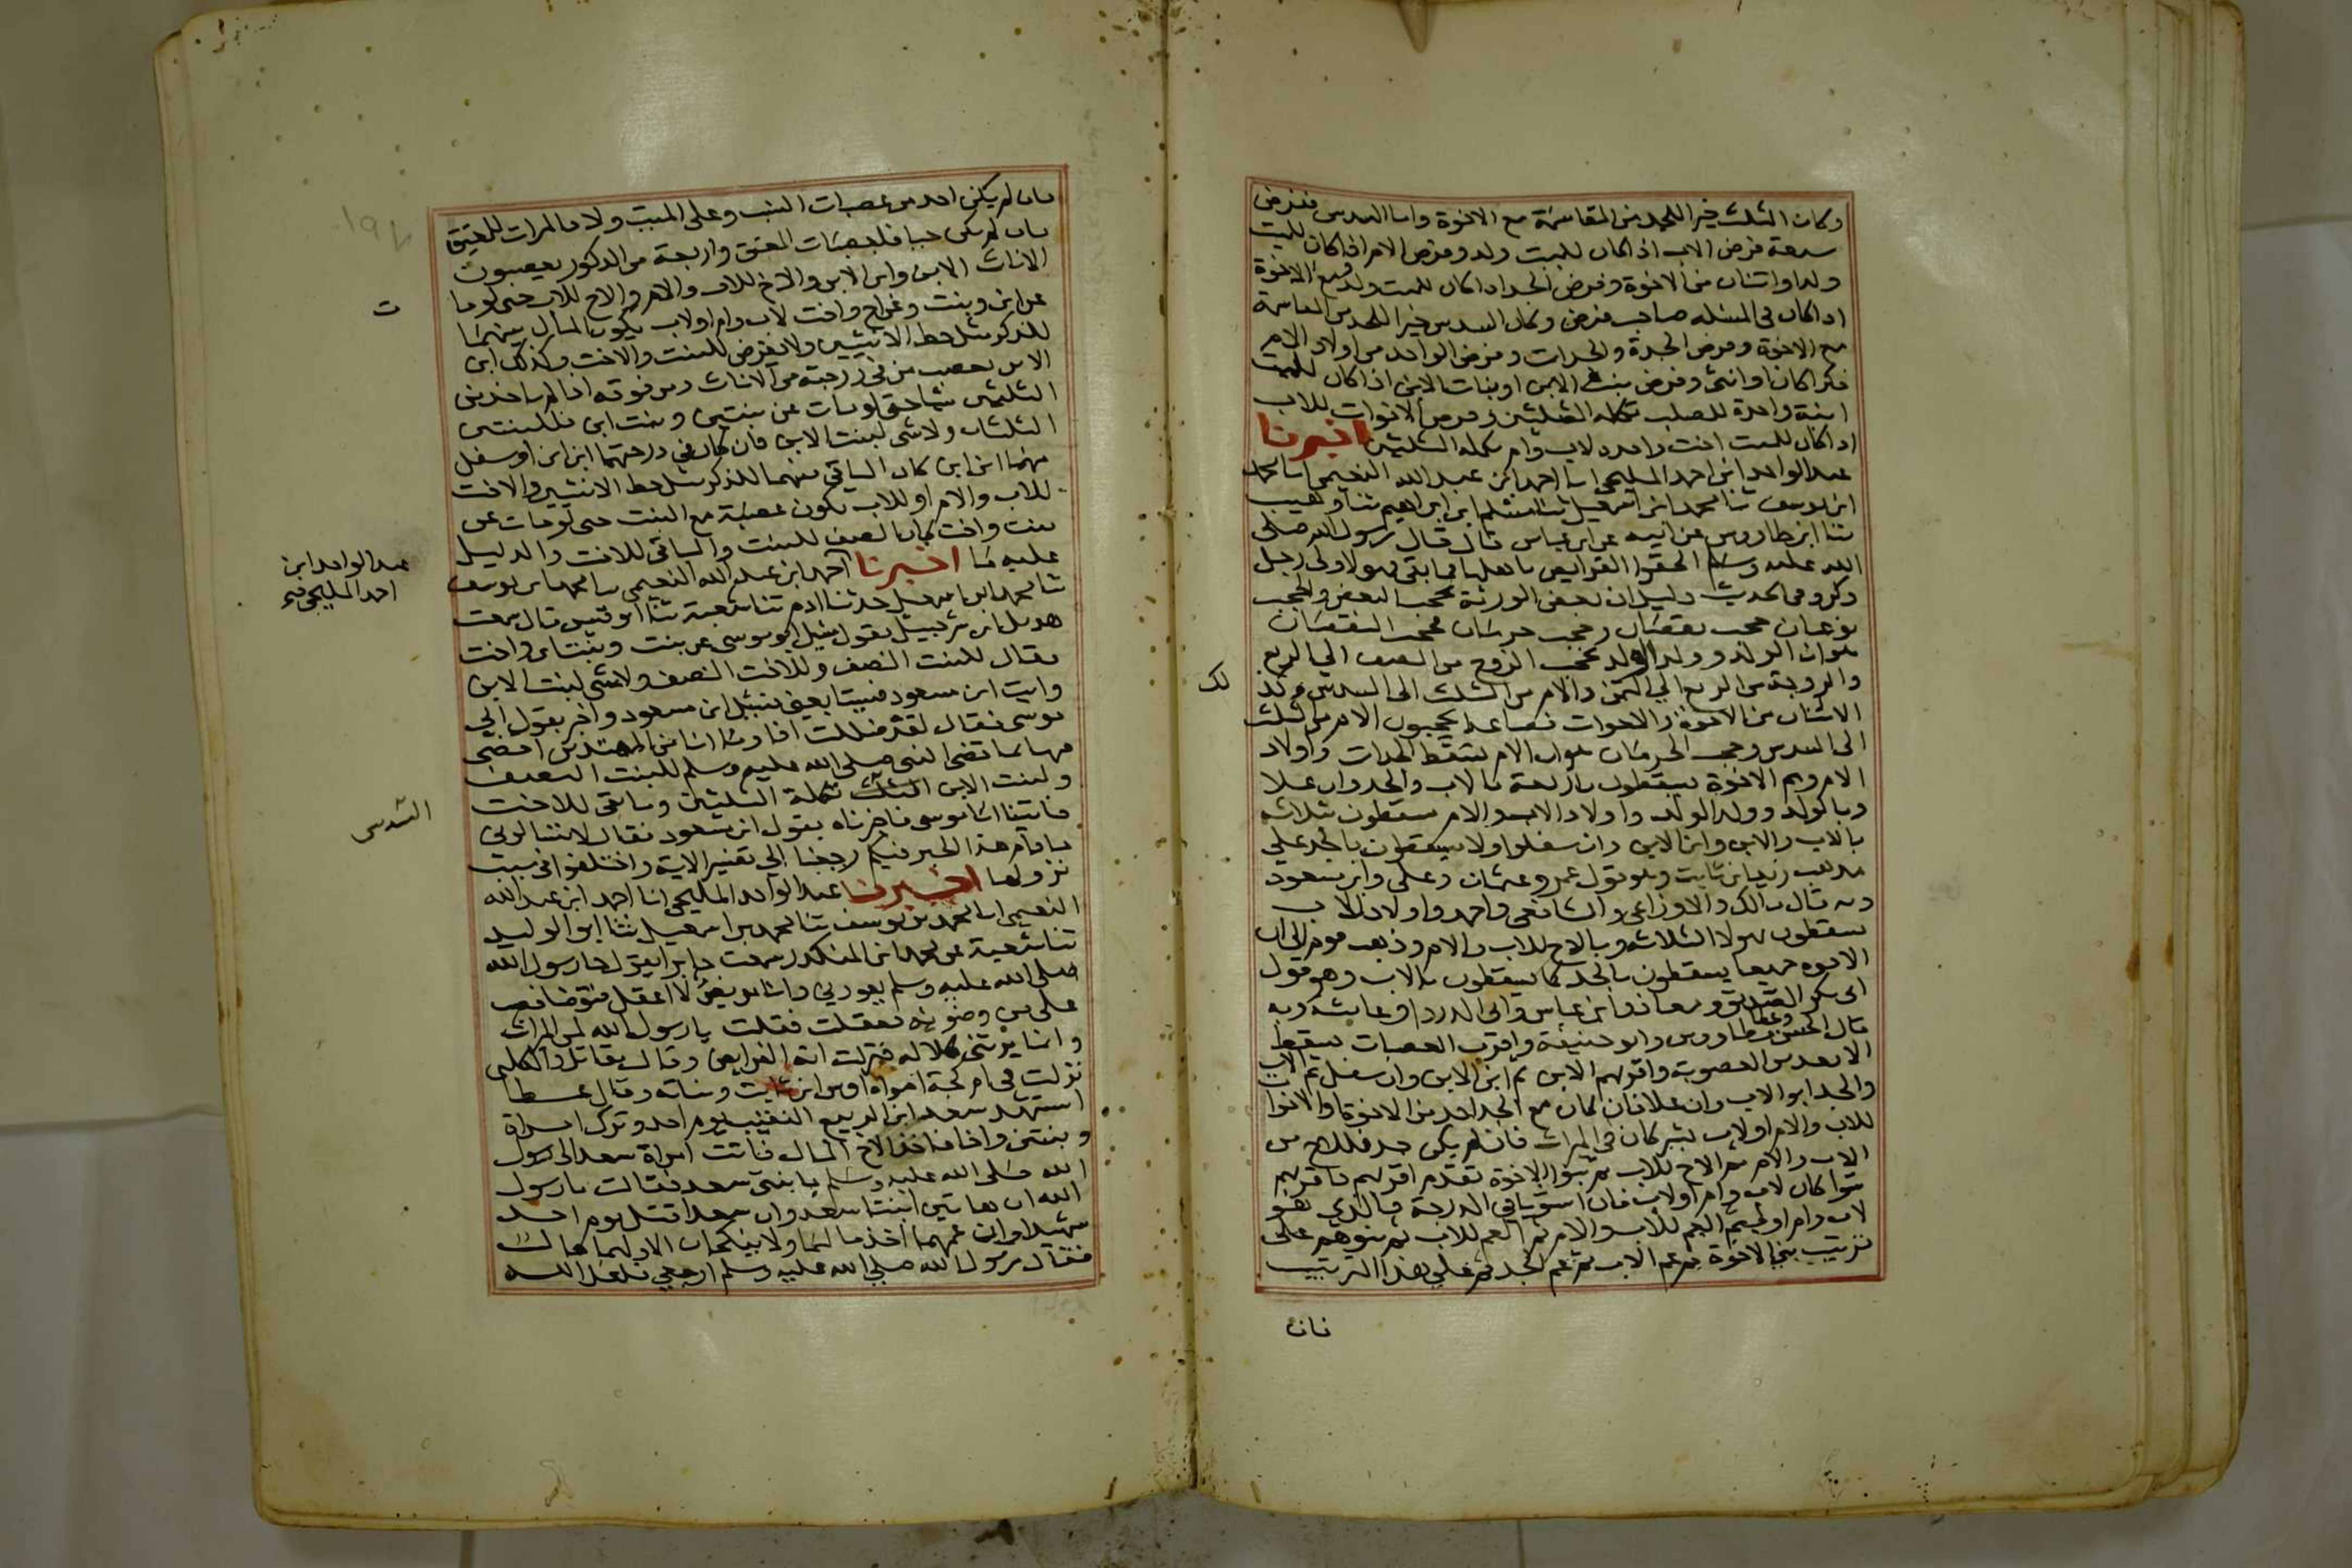 وكان الثلث خيرا للجد من المقاسمة مع الاخوة واما السدس ففرض
سبعة فرض الاب اذا كان للميت ولد وفرض الام اذا كان للميت
ولد او اثنان من الاخوة وفرض الجد اذا كان للميت ولد ومع الاخوة
اذا كان في المسئلة صاحب فرض وكان السدس خيرا للجد من المقاسمة
مع الاخوة وفرض الجدة والجدات وفرض الواحد من اولاد الام
ذكرا كان او انثى وفرض بنت الابن او بنات الابن اذا كان للميت
ابنة واحدة للصلب تكملة الثلثين وفرض الاخوات للاب
اذا كان للميت اخت واحدة لاب وام تكملة الثلثين اخبرنا
عبد الواحد ابن احمد المليحي انا احمد ابن عبد الله النعيمي انا محمد
ابن يوسف ثنا محمد ابن اسمعيل ثنا مسلم ابن ابراهيم ثنا وهيب
ثنا ابن طاووس عن ابيه عن ابن عباس قال قال رسول الله صلى
الله عليه وسلم الحقوا الفرايض باهلها فما بقي فهو لاولى رجل
ذكر وفي الحديث دليل ان بعض الورثة يحجب البعض والحجب
نوعان حجب نقصان وحجب حرمان فحجب النقصان
هو ان الولد وولد الولد يحجب الزوج من النصف الي الربع
والزوجة من الربع الي الثمن والام من الثلث الى السدس وكذلك
الاثنان من الاخوة والاخوات فصاعدا يحجبون الام من الثلث
الى السدس وحجب الحرمان هو ان الام تسقط الجدات واولاد
الام وهم الاخوة يسقطون باربعة بالاب والجد وان علا
وبالولد وولد الولد واولاد الاب والام يسقطون بثلاثة
بالاب والابن وابن الابن وان سفلوا ولا يسقطون بالجد علي
مذهب زيد ابن ثابت وهو قول عمر وعثمان وعلى وابن مسعود
وبه قال مالك والاوزاعي والشافعي واحمد واولاد الاب
يسقطون بهولا الثلاثة وبالاخ للاب والام وذهب قوم الى ان
الاخوة جميعا يسقطون بالجد كما يسقطون بالاب وهو قول
ابى بكر الصديق ومعاذ وابن عباس وابى الدردا وعايشة وبه
قال الحسن وعطا وطاووس وابو حنيفة واقرب العصبات يسقط
الابعد من العصوبة واقربهم الابن ثم ابن الابن وان سفل ثم الاب
والجد ابو الاب وان علا فان كان مع الجد احد من الاخوة والاخوات
للاب والام او لاب يشتركان في الميراث فان لم يكن جد فللاخ من
الاب والام ثم الاخ للاب ثم بنوا الاخوة تقدم اقربهم فاقربهم
سوا كان لاب وام او لاب فان استويا في الدرجة فالذي هو
لاب وام اولى ثم العم للاب والام ثم العم للاب ثم بنوهم على
ترتيب بني الاخوة ثم عم الاب ثم عم الجد ثم على هذا الترتيب
فان
فان لم يكن احد من عصبات النسب وعلى الميت ولا فالميراث للعتيق
فان لم يكن حيا فلعصبات المعتق واربعة من الذكور يعصبون
الاناث الابن وابن الابن والاخ للاب والام والاخ للاب حتى لو مات
عن ابن وبنت وعن اخ واخت لاب وام او لاب يكون المال بينهما
للذكر مثل حظ الانثيين ولا يفرض للبنت والاخت وكذلك ابن
الابن يعصب من في درجته من الاناث ومن فوقه اذا لم ياخذ من
الثلثين شيا حتى لو مات عن بنتين وبنت ابن فللبنتين
الثلثان ولا شى لبنت الابن فان كان في درجتها ابن ابن او سفل
منها ابن ابن كان الباقي بينهما للذكر مثل حظ الانثيين والاخت
للاب والام او للاب تكون عصبة مع البنت حتى لو مات عن
بنت واخت كان النصف للبنت والباقي للاخت والدليل
عليه ما اخبرنا احمد ابن عبد الله النعيمي انا محمد ابن يوسف
ثنا محمد ابن اسمعيل حدثنا ادم ثنا شعبة ثنا ابو قيس قال سمعت
هزيل ابن شرحبيل يقول سيل ابو موسى عن بنت وبنت ابن واخت
فقال للبنت النصف وللاخت النصف ولا شى لبنت الابن
وايت ابن مسعود فسيتابعني فسيل ابن مسعود واخبر بقول ابي
موسى فقال لقد ضللت اذا وما انا من المهتدين اقضي
فيها بما قضى النبي صلى الله عليه وسلم للبنت النصف
ولبنت الابن الثلث تكملة الثلثين وما بقي للاخت
فاتينا ابا موسى فاخبرناه بقول ابن مسعود فقال لا تسالوني
ما دام هذا الحبر فيكم رجعنا الي تفسير الاية واختلفوا في سبب
نزولها اخبرنا عبد الواحد المليحي انا احمد ابن عبد الله
النعيمي انا محمد بن يوسف ثنا محمد بن اسمعيل ثنا ابو الوليد
ثنا شعبة عن محمد ابن المنكدر سمعت جابرا يقول جا رسول الله
صلى الله عليه وسلم يعودني وانا مريض لا اعقل فتوضا فصب
على من وضوئه فعقلت فقلت يا رسول الله لمن الميراث
وانما يرثني كلالة فنزلت اية الفرايض وقال مقاتل والكلبي
نزلت في ام كجة امراة اوس ابن ثابت وبناته وقال عطا
استشهد سعد ابن الربيع النقيب يوم احد وترك امراة
وبنتين واخا فاخذ الاخ المال فاتت امراة سعد الى رسول
الله صلى الله عليه وسلم بابنتي سعد فقالت يا رسول
الله ان هاتين ابنتا سعد وان سعدا قتل يوم احد
شهيدا وان عمهما اخذ مالهما ولا ينكحان الا ولهما مال
فقال رسول الله صلى الله عليه وسلم ارجعي فلعل الله
ت
عبد الواحد ابن
احمد المليحي
السدس
لك